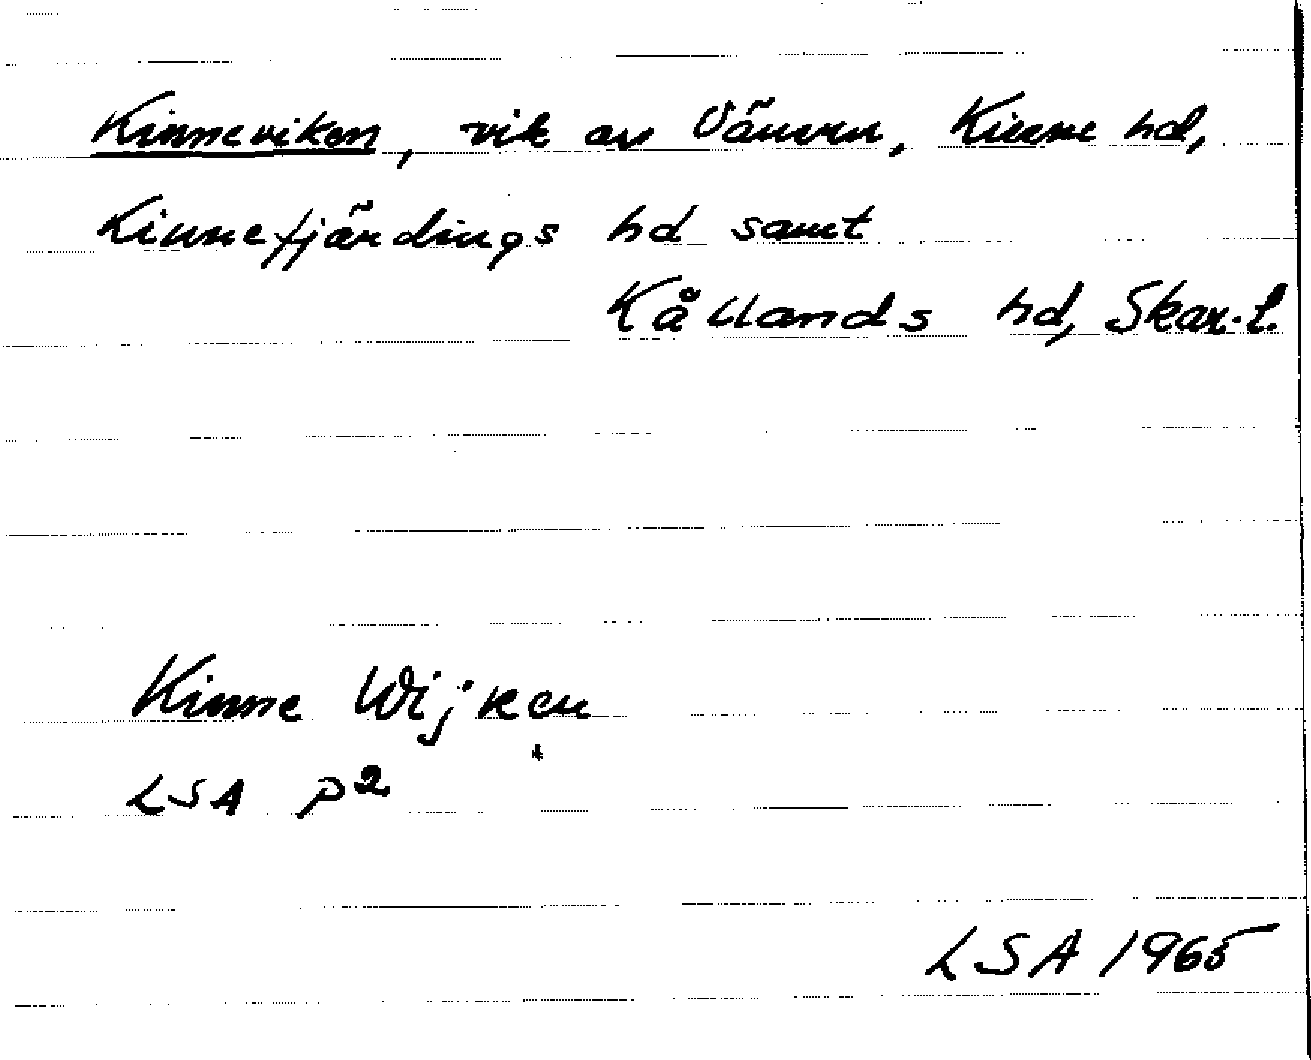 Kinneviken, vik av Vänern, Kinne hd,
Kinnefjärdings hd samt
Kållands hd, Skar. l.
Kinne Wijken
LSA P2
LSA 1965